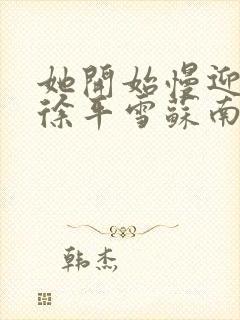 她開始慢迎
徐平雪蘇南
韩杰